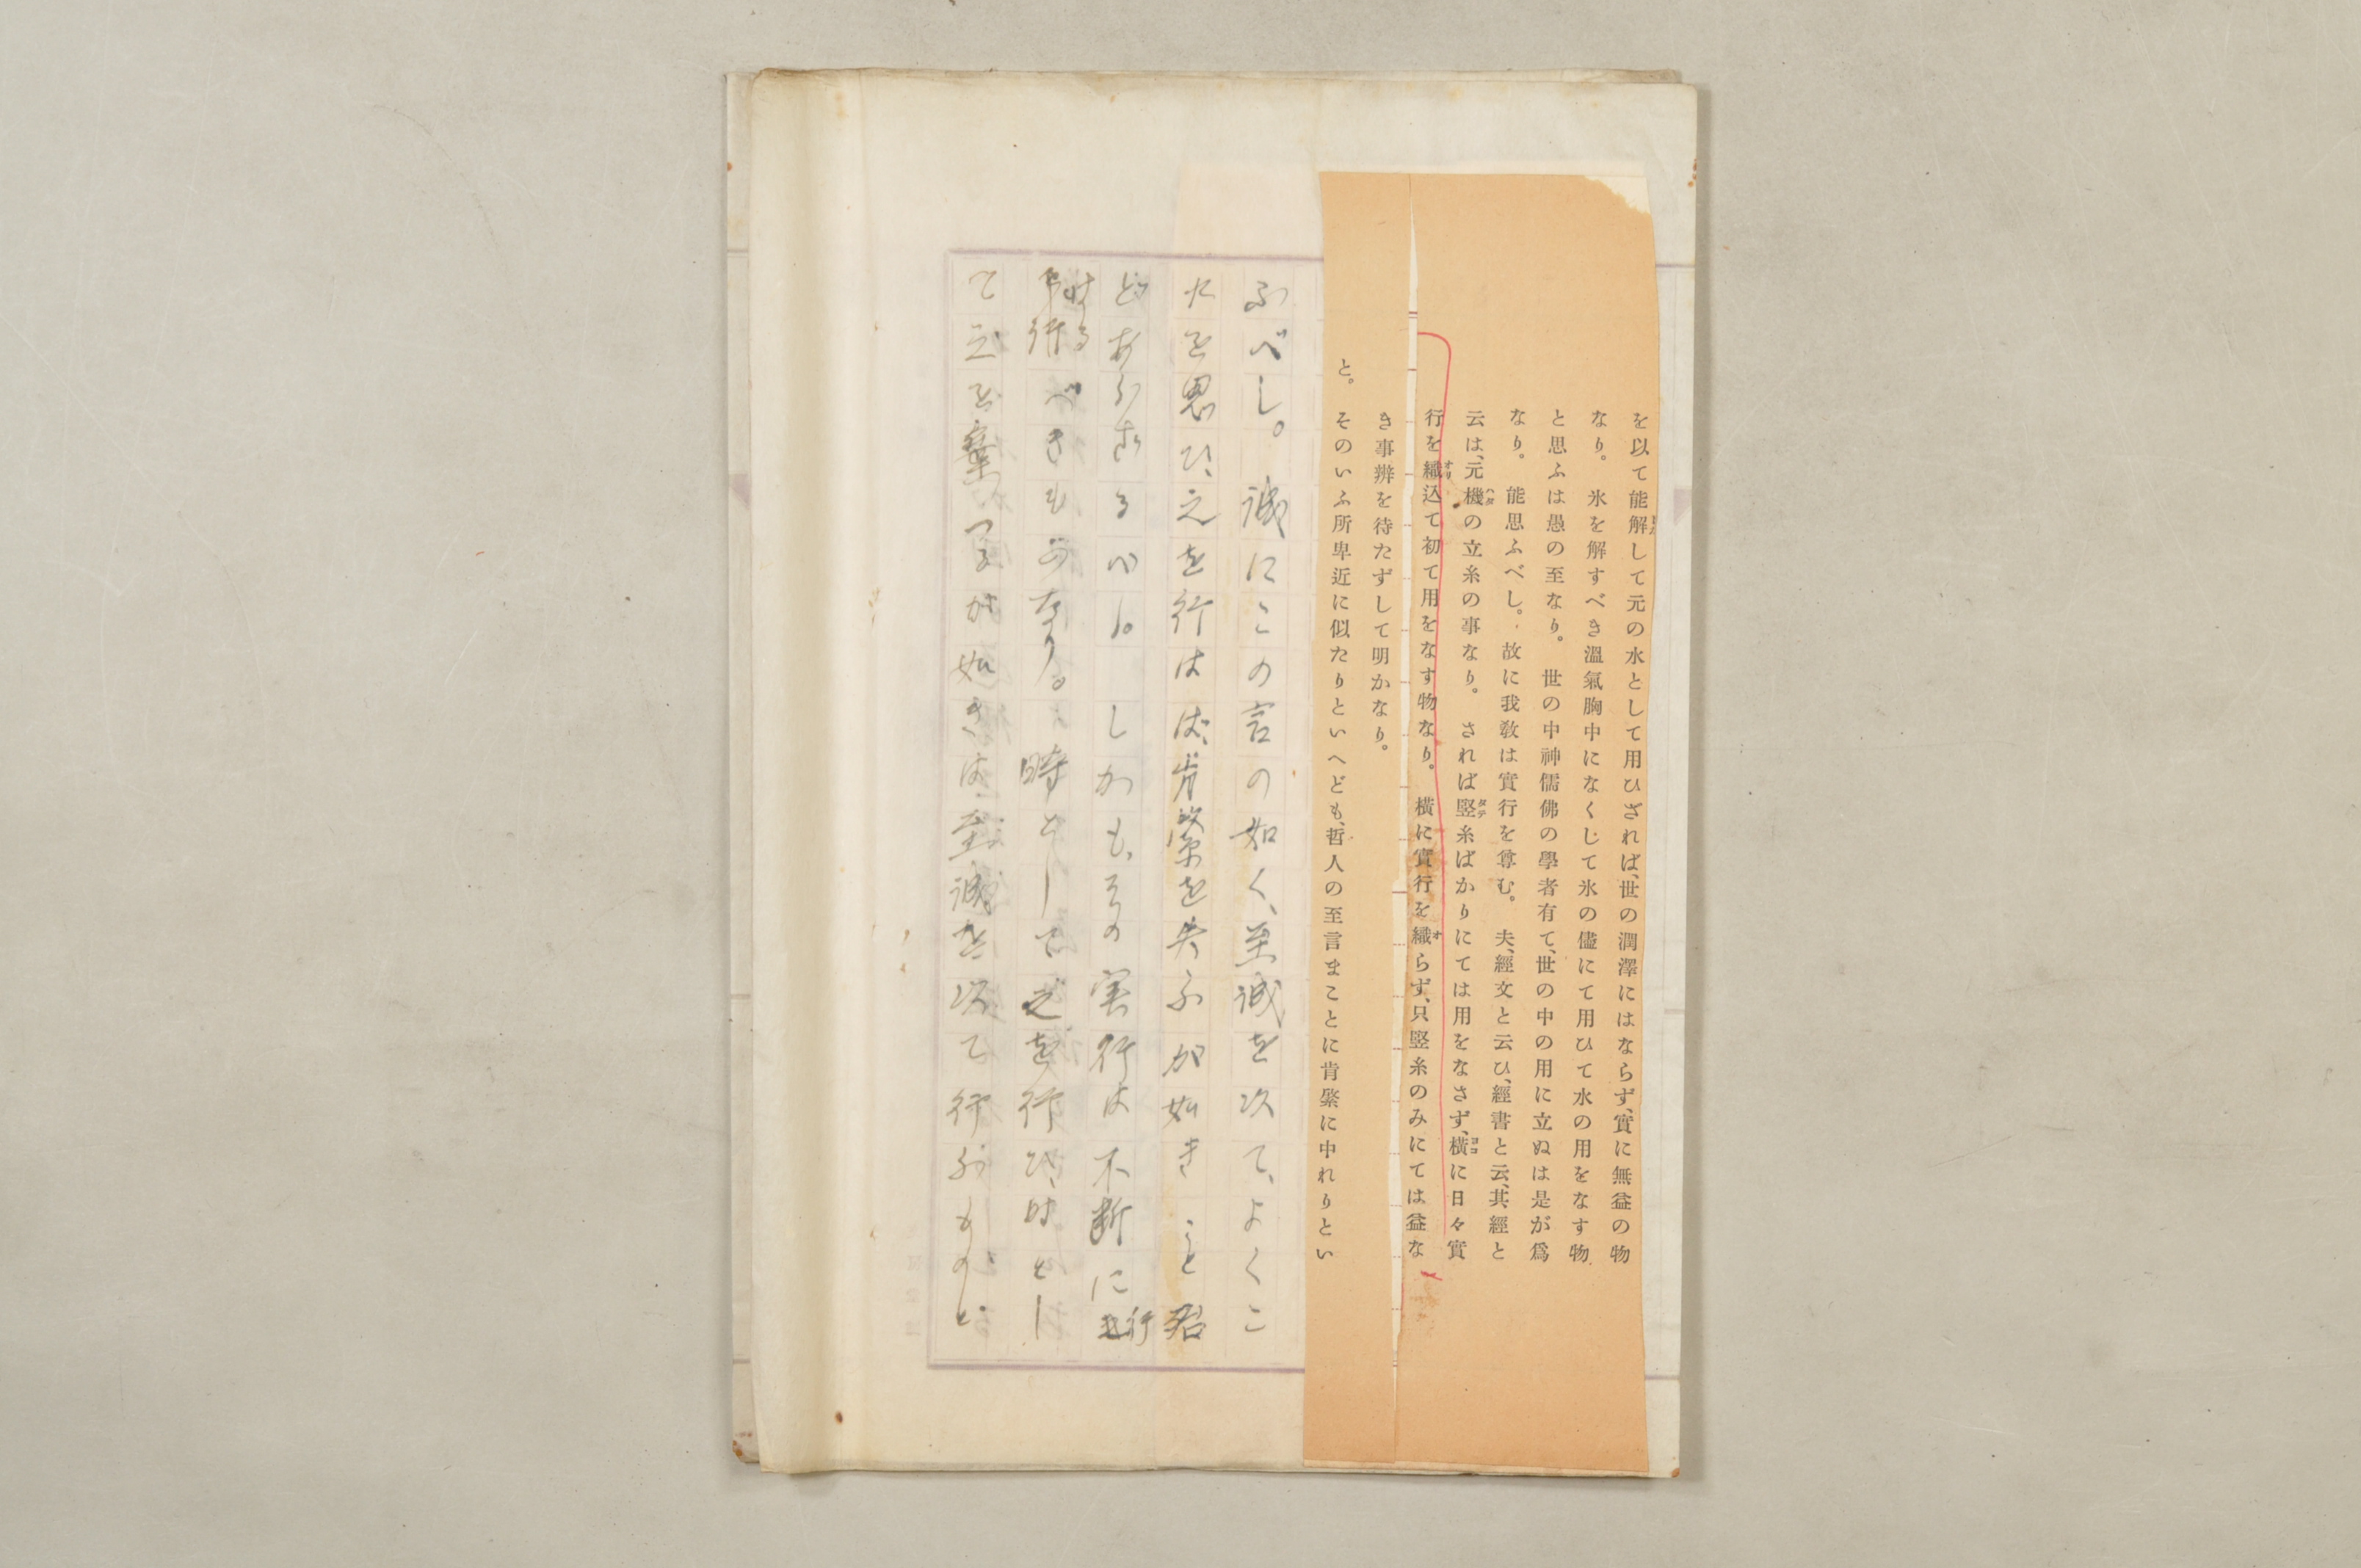 を以て能解して元の水として用ひざれば、世の潤澤にはならず、實に無益の物
なり。氷を解すべき溫氣胸中になくじて氷の儘にて用ひて水の用をなす物
と思ふは愚の至なり。世の中神儒佛の學者有て、世の中の用に立ぬは是が爲
なり。能思ふべし。故に我敎は實行を尊む。夫、經文と云ひ、經書と云、其經と
云は、元機ハタの立糸の事なり。されば竪タテ糸ばかりにては用をなさず、橫ヨコに日々實
行を織オリ込て初て用をなす物なり。橫に實行を織オらず、只竪糸のみにては益な
き事辨を待たずして明かなり。
と。そのいふ所卑近に似たりといへども、哲人の至言まことに肯綮に中れりとい
ふべし。誠にこの言の如く、至誠を以て、よくこ
れを思ひ、之を行はば、肯綮を失ふが如きこと
どあらざるべし。しかも、その実行は不断に行
はるべきものなり。時としてこれを行ひ、時とし
て之を棄つるが如きは、至誠を以て行ふものと